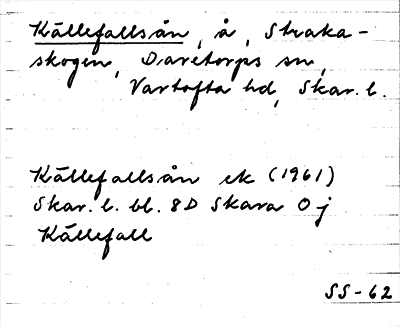 Källefallsån, å, Straka-
skogen, Daretorps sn,
Vartofta hd, Skar. l.
Källefallsån ek (1961)
Skar. l. bl. 8D Skara 0 j
Källefall
SS-62